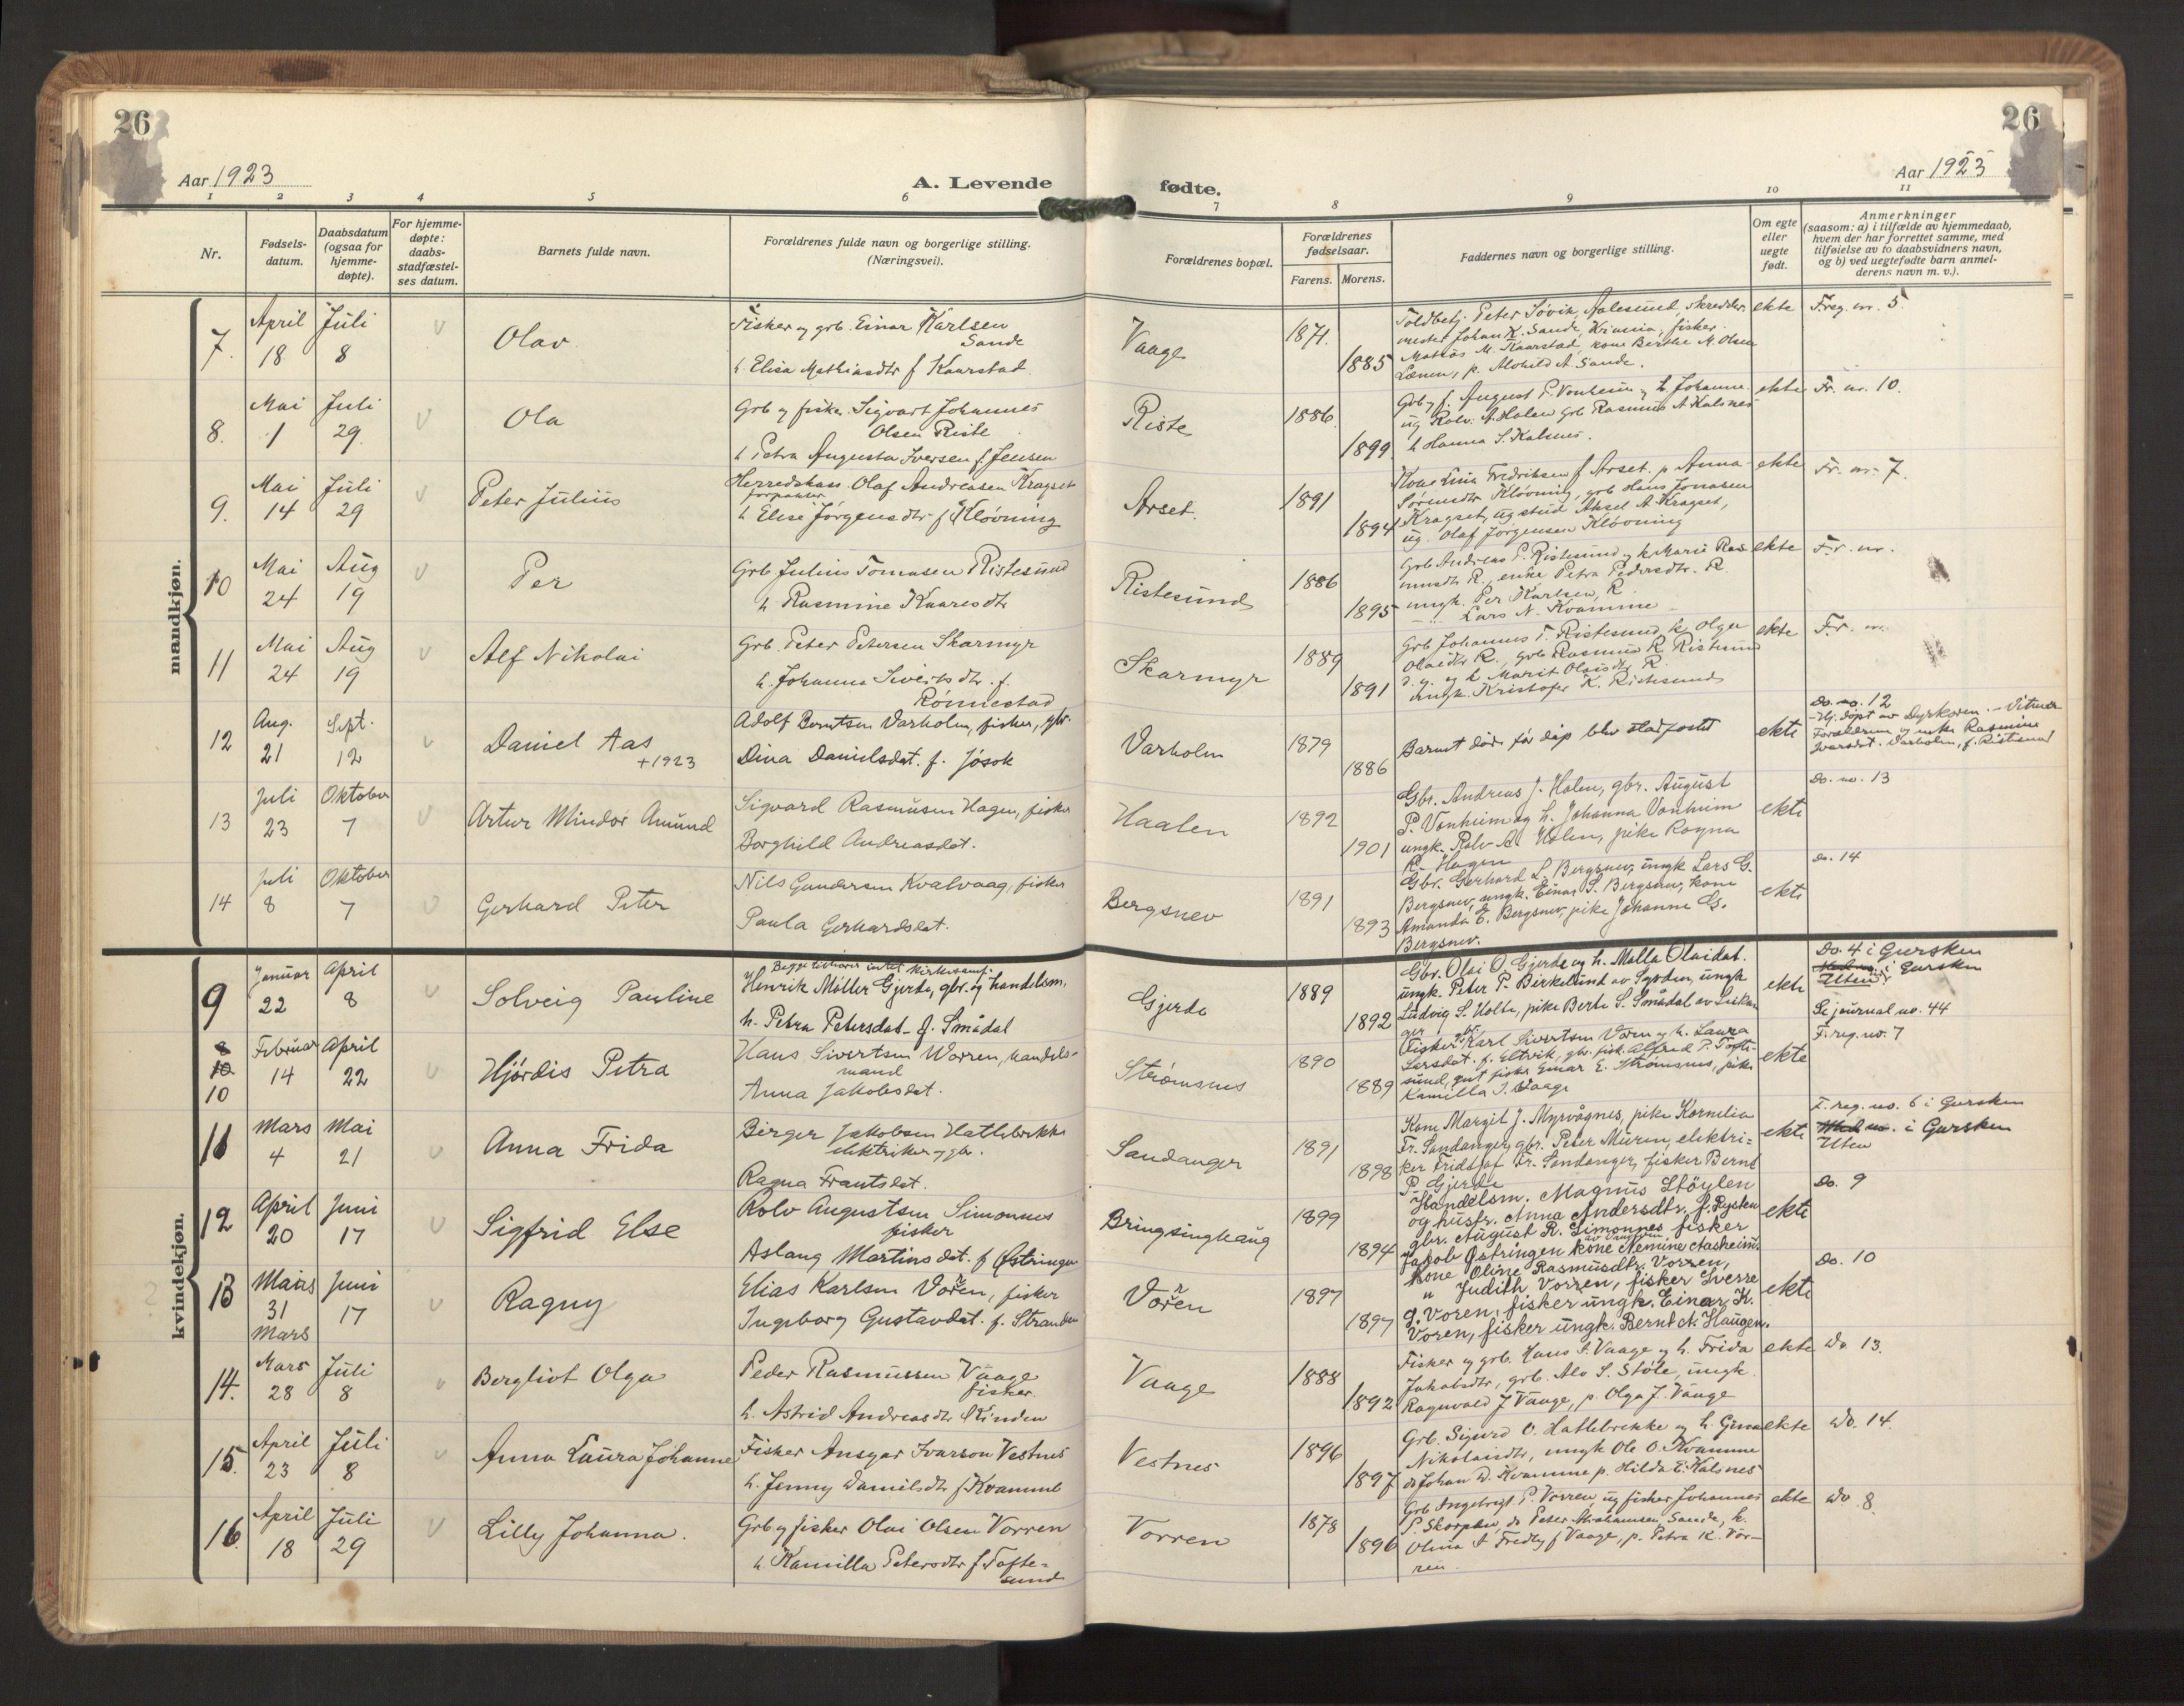 26
26
Aar 1923
A. Levende fødte.
Aar 1923
1 2 3 4 5 6 7 8 9 10 11
Nr.
Fødsels-
datum.
Daabsdatum
(ogsaa for
hjemme-
døpte).
For hjemme-
døpte:
daabs-
stadfæstel-
ses datum.
Barnets fulde navn.
Forældrenes fulde navn og borgerlige stilling.
(Næringsvei).
Forældrenes bopæl.
Forældrenes
fødselsaar.
Farens. Morens.
Faddernes navn og borgerlige stilling.
Om egte
eller
uegte
født.
Anmerkninger
(saasom: a) i tilfælde av hjemmedaab,
hvem der har forrettet samme, med
tilføielse av to daabsvidners navn,
og b) ved uegtefødte barn anmel-
derens navn m. v.).
mandkjøn.
7.
April
18
Juli
8
Olav
Fisker og grb. Einar Karlsen
Sande
h. Elisa Mathiasdtr f Kaarstad
Vaage
1871.
1885
Toldbetj. Peter Søvik, Aalesund, skredder
mester Johan K. Sande, Kr.ania, fisker
Mathias M. Kaarstad, kone Berthe M. Olsen
p. Alvhild A. Sande.
ekte
Freg. nr. 5
8.
Mai
1
Juli
29
Ola
Grb og fisker Sigvart Johannes
Olsen Riste
h Petra Augusta Iversen f. Jensen
Riste
1886.
1899.
Grb og f. August P. Vonheim og h. Johanna
ug Rolv A. Holen grb Rasmus A Kalsnes
h Hanna S. Kalsnes.
ekte
Fr. nr. 10.
9.
Mai
14
Juli
29
Peter Julius
Herredskass. Olaf Andreasen Kragset
forpakter
h Elise Jørgensdtr f Kløvning
Årset.
1891
1894
Kone Lina Fredriksen f Årset. p Anna
Sørensdtr Kløvning, grb Hans Jonasen
Kragset, ug stud Aksel A. Kragset,
ug. Olaf Jørgensen Kløvning
ekte
Fr. nr. 7.
10
Mai
24
Aug
19
Per
Grb Julius Tomasen Ristesund
h Rasmine Knaresdtr
Ristesund
1886
1895
Grb Andreas P. Ristesund og h Marie Ras-
musdtr R., enke Petra Pedersdtr. R.
ungk. Per Karlsen, R.
" Lars N. Kvamme
ekte
Fr. nr.
11
Mai
24
Aug
19
Alf Nikolai
Grb. Peter Petersen Skarmyr
h. Johanna Sivertsdtr. f.
Rønnestad
Skarmyr
1889
1891
Grb Johannes T. Ristesund k. Olga
Olaidtr R., grb Rasmus R. Ristesund
s. g. og h Marit Olaisdtr R.
ungk. Kristofer K. Ristesund
ekte
Fr. nr.
12
Aug.
21
Sept.
12
Daniel Aas
+1923
Adolf Berntsen Varholm, fisker, gbr.
Dina Danielsdat. f. Jøsok
Varholm
1879
1886
Barnet døde før dåp blev stadfestet
ekte
Do. no. 12
- Hj. døpt av Dyrkoren. - Vitner
Forældrene og enke Rasmine
Ivarsdat. Varholm, f. Ristesund
13
Juli
23
Oktober
7
Artur Mindor Amund
Sigvard Rasmusen Hagen, fisker
Borghild Andreasdat.
Haalen
1892
1901
Gbr. Andreas J. Holen, gbr. August
P. Vonheim og h. Johanna Vonheim
ungk. Rolv A. Holen, pike Rogna
R. Hagen
ekte
Do. no. 13
14
Juli
8
Oktober
7
Gerhard Peter
Nils Gundersen Kvalvaag, fisker
Paula Gerhardsdat.
Bergsnev
1891
1893
Gbr. Gerhard L. Bergsnev, ungk Lars G.
Bergsnev, ungk. Einar S. Bergsnev, kone
Amanda E. Bergsnev, pike Johanne G.
Bergsnev.
ekte
Do. 14
kvindekjøn.
9
Januar
22
April
8
Solveig Pauline
Begge tilhører intet kirkesamf.
Henrik Møller Gjerde, gbr. og handelsm.
h. Petra Petersdat. f. Smådal
Gjerde
1889
1892
Gbr. Olai O. Gjerde og h. Malla Olaidat.
ungk. Peter P. Birkelund av Syvden, ungk
Ludvig S. Holte, pike Berte S. Smådal av Leikan
ger
ekte
Do. 4 i Gursken
i Gursken
Uten
Se journal no. 44
8
10
10
Februar
14
April
22
Hjørdis Petra
Hans Sivertsen Worren, handels-
mand
Anna Jakobsdat.
Strømsnes
1890
1889
Fisker Karl Sivertsen Voren og h. Laura
Larsdat. f. Eltvik, gbr. fisk. Alfred P. Tofte-
sund, gut fisker Einar E. Strømsnes, pike
Kamilla J. Vaage
ekte
F. reg. no. 7
11
Mars
4
Mai
21
Anna Frida
Birger Jakobsen Hatlebrekke
elektriker og gbr.
Ragna Frantsdat.
Sandanger
1891
1898
Kone Margit J. Myrvågnes, pike Kornelia
Fr. Sandanger, gbr. Peter Muren, elektri-
ker Fridtjof Fr. Sandanger, fisker Bernt
P. Gjerde
ekte
F. reg. no. 6 i Gursken
i Gursken
Uten
12
April
20
Juni
17
Sigfrid Else
Rolv Augustsen Simonnes
fisker
Aslaug Martinsdat. f Østringen
Bringsinghaug
1899
1894
Handelsm. Magnus Støylen
og husfr. Anna Andersdtr. f. Rysten
gbr. August R. Simonnes fisker
Jakob Østringen kone Nemine Aasheim.
ekte
Do. 9
13
Mars
31
Mars
Juni
17
Ragny
Elias Karlsen Voren, fisker
Ingeborg Gustavdat. f. Stranden
Voren
1897
1897
Kone Oline Rasmusdtr. Vorren,
" Judith Vorren, fisker Sverre
G. Voren, fisker ungk. Einar K.
Voren, fisker ungk. Bernt A. Haugen.
ekte
Do. 10
14.
Mars
28
Juli
8
Bergliot Olga
Peder Rasmussen Vaage
fisker.
h. Astrid Andreasdtr f Rinden
Vaage
1888
1892
Fisker og grb. Hans P. Vaage og h. Frida
Jakobsdtr, grb. Alv S. Støle, ungk.
Ragnvald J Vaage, p. Olga J. Vaage
ekte
Do. 13.
15.
April
23
Juli
8
Anna Laura Johanne
Fisker Ansgar Ivarson Vestnes
h. Jenny Danielsdtr f Kvamme
Vestnes
1896
1897
Grb. Sigurd O. Hatlebrekke og h. Gina
Nikolaisdtr, ungk Ole O. Kvamme
do Johan D. Kvamme p. Hilda E. Kalsnes
ekte
Do. 14
16.
April
18
Juli
29
Lilly Johanna.
Grb og fisker Olai Olsen Vorren
h Kamilla Petersdtr f Tofte-
sund
Vorren
1878
1896
Grb Ingebrigt P. Vorren, ug fisker Johannes
P. Skorpen, do Peter Abrahamsen, Sande, h.
Olina A Fredly f Vaage, p. Petra K. Vor-
ren.
ekte
Do. 8